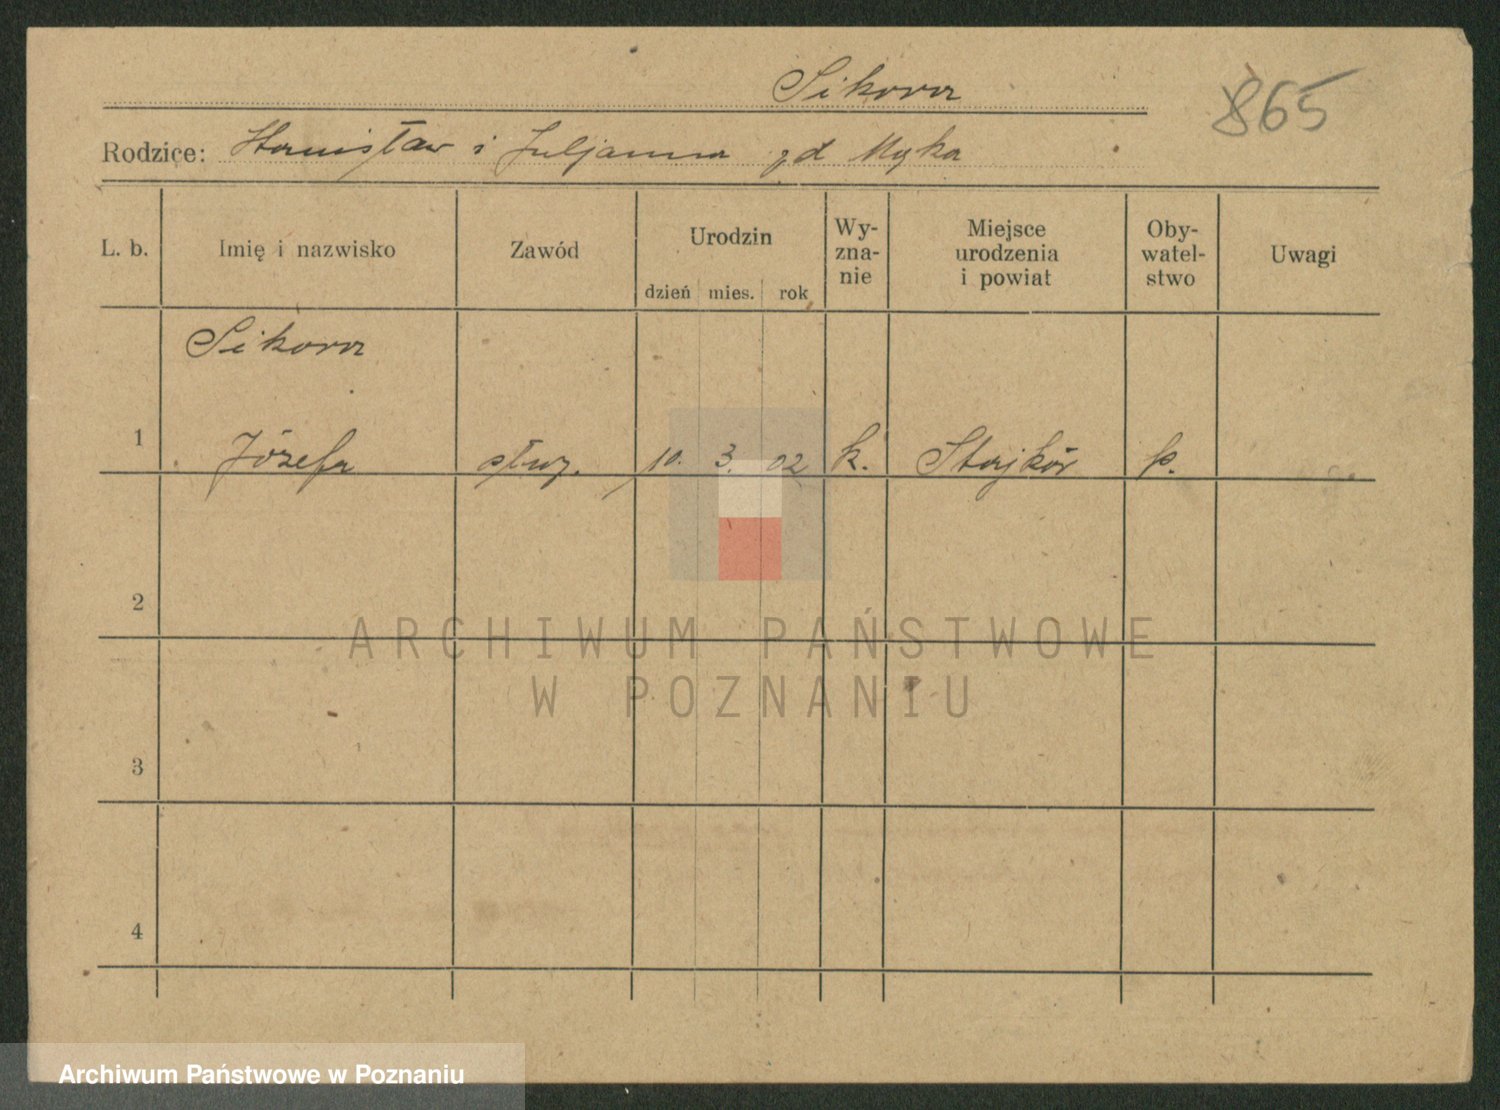 Sikora
865
Rodzice: Stanisław i Juljanna zd Myka
L. b. Imię i nazwisko Zawód Urodzin Wy-zna-nie Miejsce urodzenia i powiat Oby-watel-stwo Uwagi
dzień mies. rok
Sikora
1 Józefa służ. 10. 3. 02 k. p.
2
ARCHIWUM PAŃSTWOWE
W POZNANIU
3
4
Archiwum Państwowe w Poznaniu